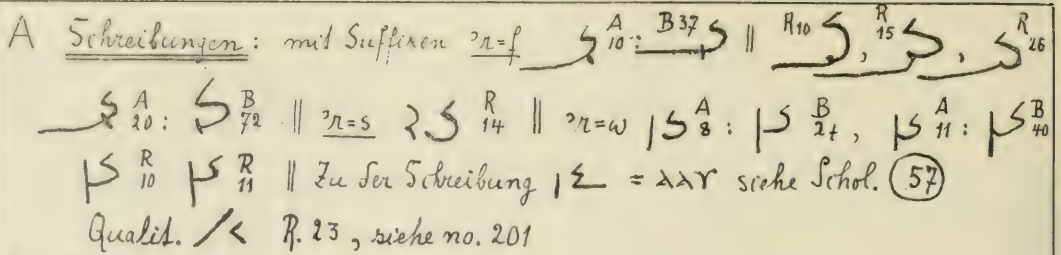 A Schreibungen: mit Suffixen ꜣr=f A 10: B 37 || R 10, R 15, R 26
A 20: B 72 || ꜣr=s R 14 || ꜣr=w A 8: B 27, A 11: B 40
R 10 R 11 || Zu der Schreibung = ⲁⲁⲩ siehe Schol. 57
Qualit. R. 23, siehe no. 201